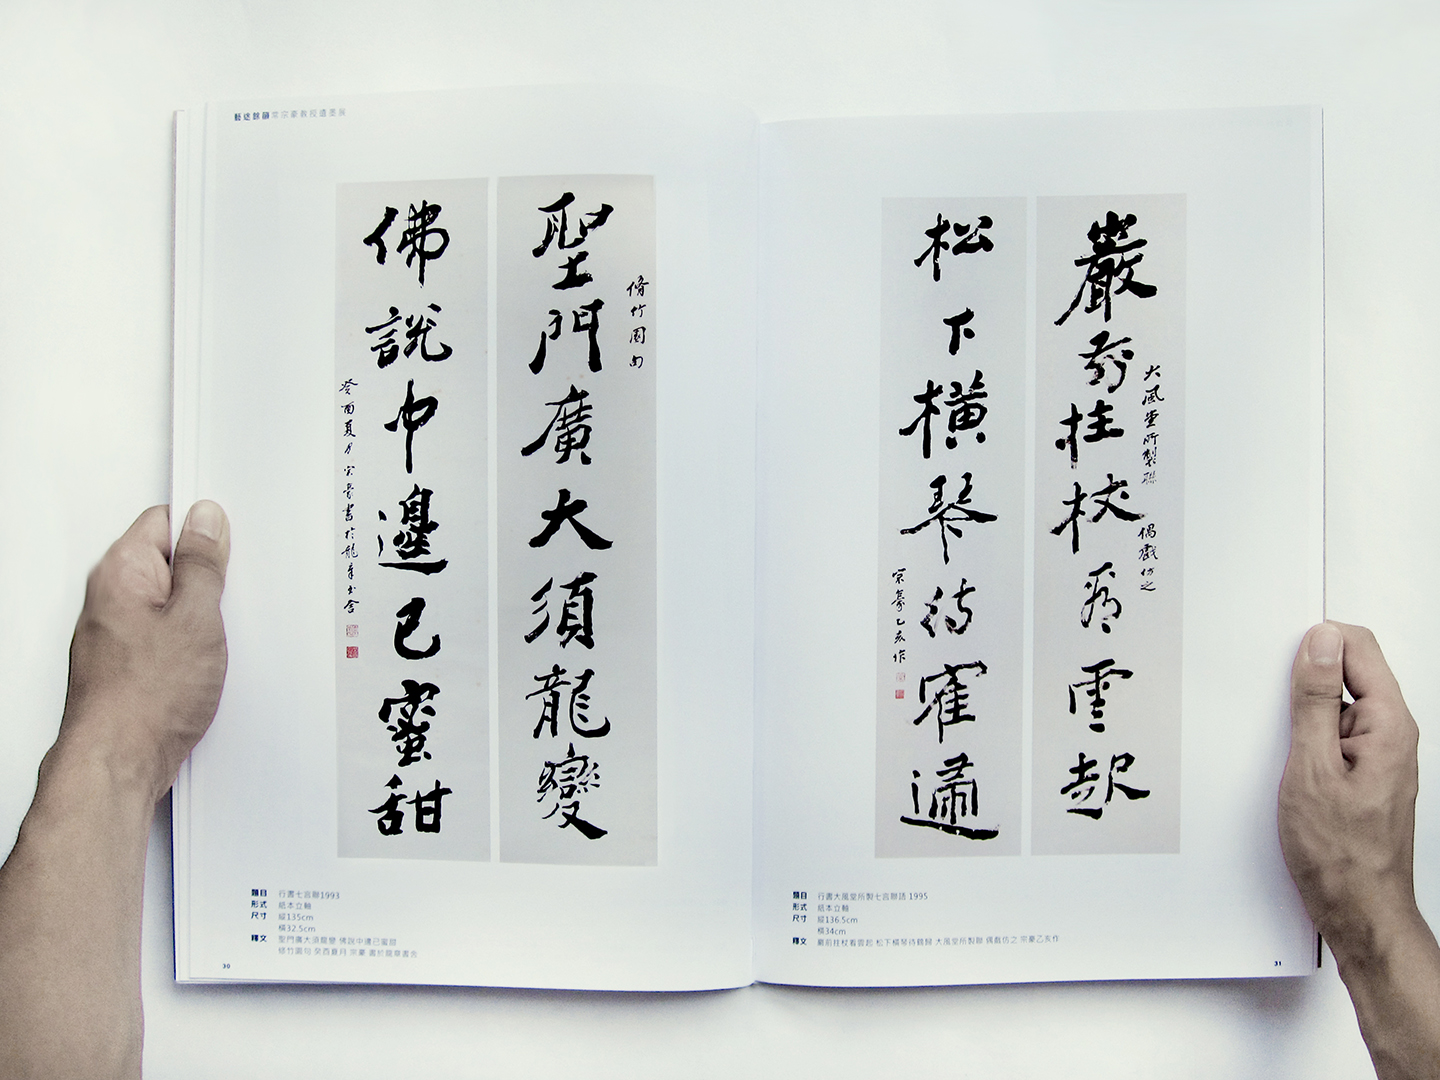 藝途餘韻 常宗豪教授遺墨展
聖門廣大須龍變
脩竹園句
佛說中邊已蜜甜
癸酉夏月宗豪書於龍章書舍
題目 行書七言聯1993
形式 紙本立軸
尺寸 縱135cm
橫32.5cm
釋文 聖門廣大須龍變 佛說中邊已蜜甜
脩竹園句 癸酉夏月 宗豪 書於龍章書舍
30
巖前拄杖看雲起
大風堂所製聯
偶戲仿之
松下橫琴待鶴歸
宗豪乙亥作
題目 行書大風堂所製七言聯語 1995
形式 紙本立軸
尺寸 縱136.5cm
橫34cm
釋文 巖前拄杖看雲起 松下橫琴待鶴歸 大風堂所製聯 偶戲仿之 宗豪乙亥作
31